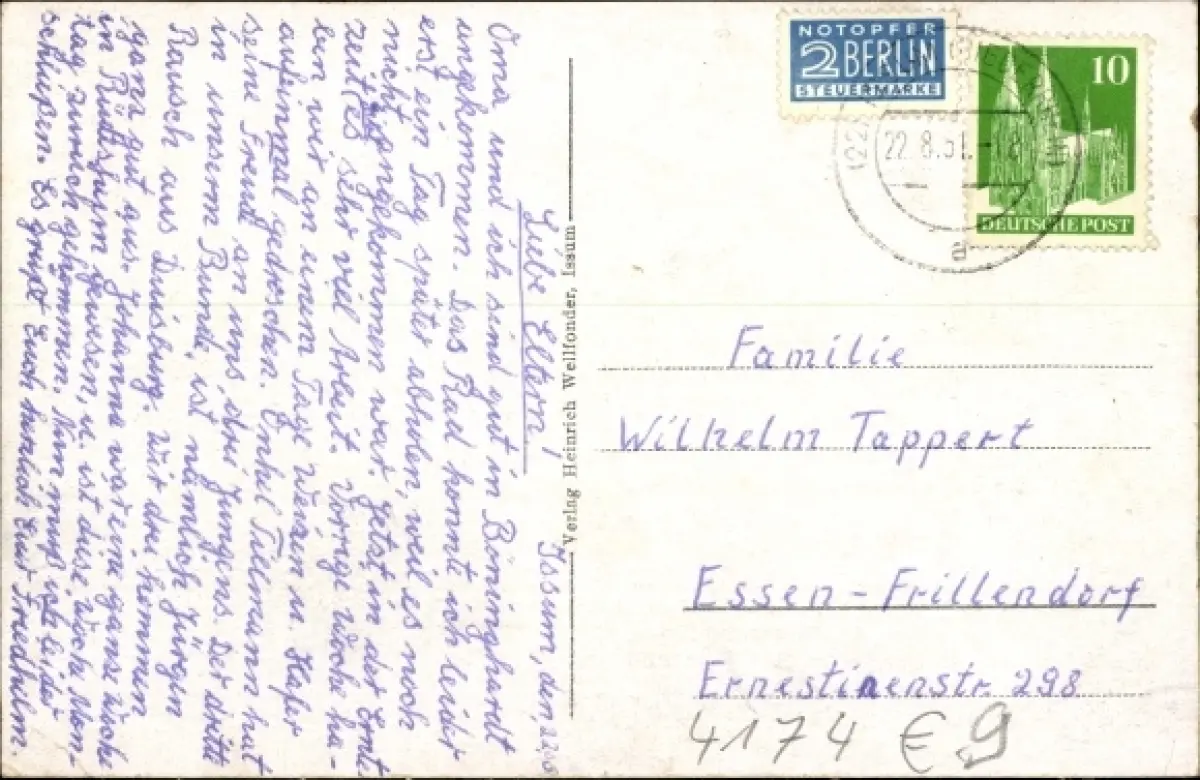 Issum, den, 22.8
Liebe Eltern!
Oma und ich sind gut in Bönninghardt
angekommen. Das Rad konnte ich leider
erst ein Tag später abholen, weil es noch
nicht angekommen war. Jetzt in der Ernte
zeit ist sehr viel Arbeit. Vorige Woche ha-
ben wir an einem Tage Weizen u. Hafer
aufeinmal gedroschen. Onkel Tillmann hat
seine Freud an uns drei Jungens. Der dritte
in unserm Bunde, ist nämlich Jürgen
Bausch aus Duisburg. Wir drei kommen
ganz gut aus. Johanna war eine ganze Woche
in Rüdesheim gewesen, u. ist diese Woche Mon-
tag zurück gekommen. Nun muß ich leider
schließen. Es grüßt Euch herzlich Euer Friedhelm.
Verlag Heinrich Wellfonder, Issum
NOTOPFER
2 BERLIN
STEUERMARKE
10
DEUTSCHE POST
22.8.51
a
Familie
Wilhelm Tappert
Essen-Frillendorf
Ernestinenstr. 298
4174 € 9